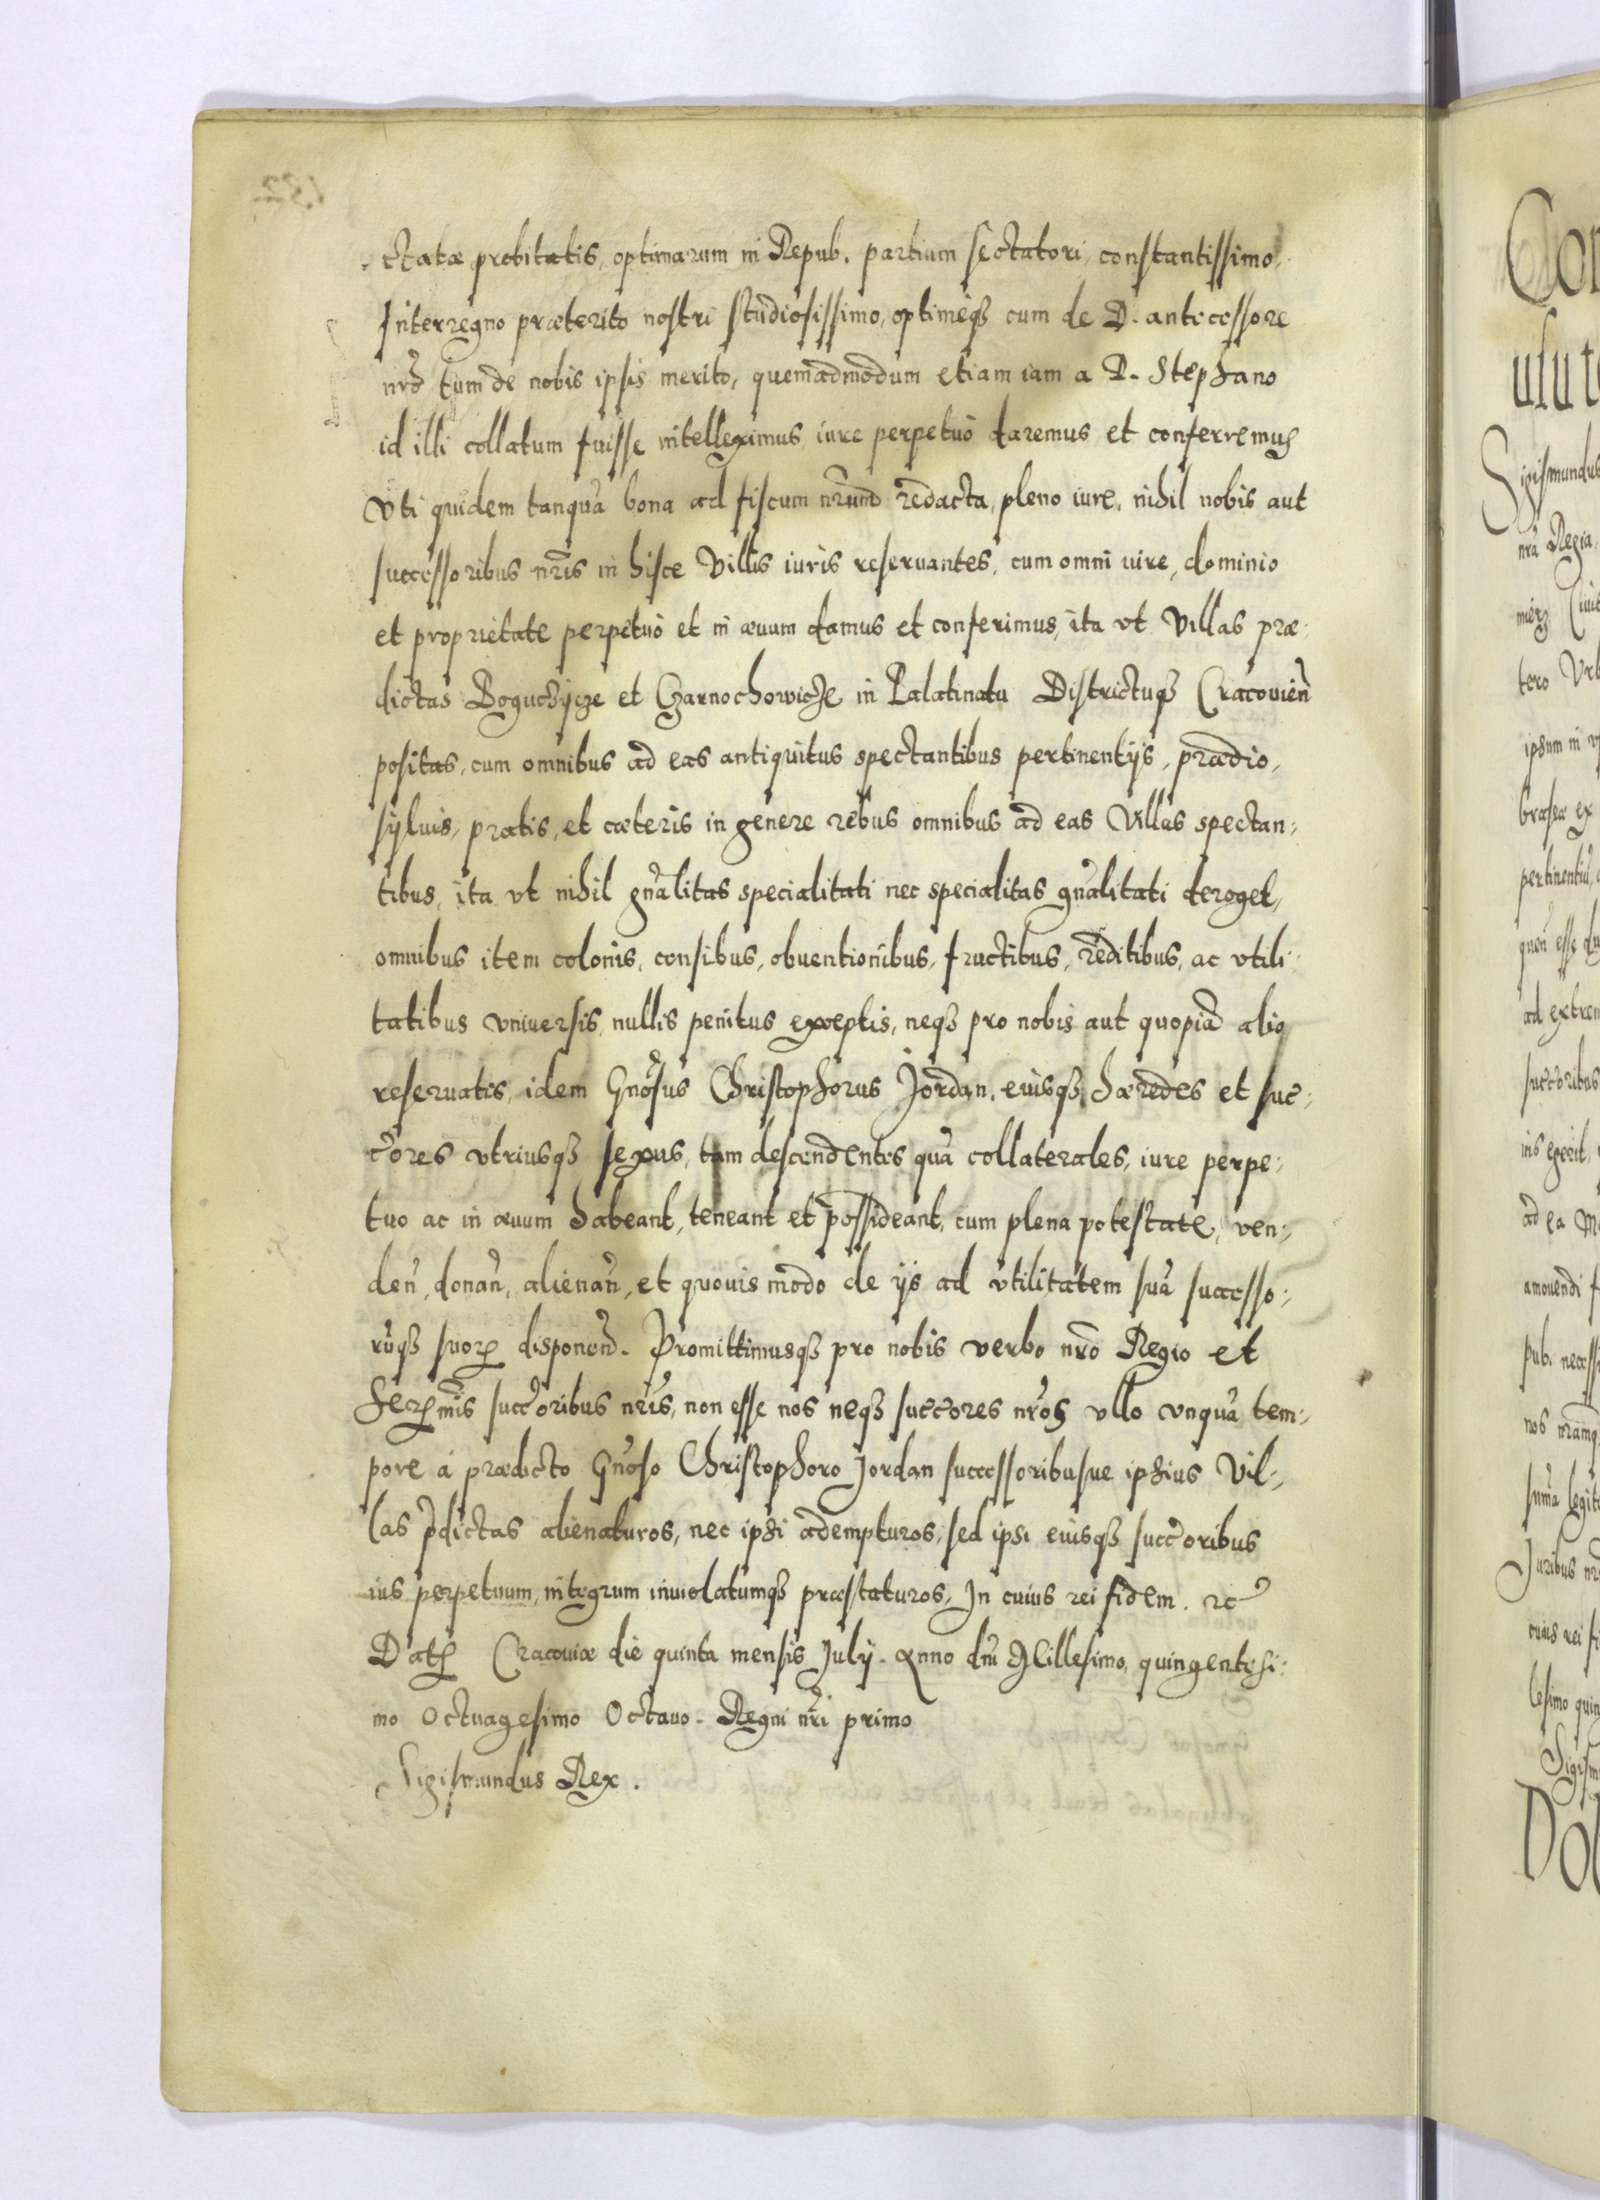 ctatæ probitatis, optimarum in Repub. partium sectatori, constantissimo,
Interregno præterito nostri studiosissimo, optimeq₃ cum de D. antecessore
nro tum de nobis ipsis merito, quemadmodum etiam iam a D. Stephano
id illi collatum fuisse intelleximus iure perpetuo daremus et conferremus
Vti quidem tanquā bona ad fiscum nrum redacta, pleno iure, nihil nobis aut
successoribus nris in hisce Villis iuris reservantes, cum omni iure, dominio
et proprietate perpetuo et in ævum damus et conferimus, ita vt Villas præ:
dictas Boguchÿcze et Czarnochowicze in Palatinatu Districtuq₃ Cracovien̄
positas, cum omnibus ad eas antiquitus spectantibus pertinentijs, prædio,
sÿluis, pratis, et cæteris in genere rebus omnibus ad eas Villas spectan:
tibus, ita vt nihil gn̄alitas specialitati nec specialitas gn̄alitati deroget,
omnibus item colonis, censibus, obuentionibus, fructibus, reditibus, ac vtili:
tatibus vniuersis, nullis penitus exceptis, neq₃ pro nobis aut quopiā alio
reseruatis, idem Gn̄osus Christophorus Jordan, eiusq₃ hæredes et suc:
c̄ores vtriusq₃ sexus, tam descendentes quā collaterales, iure perpe:
tuo ac in æuum habeant, teneant et possideant, cum plena potestate, ven:
den̄, donan̄, alienan̄, et quouis modo de ijs ad vtilitatem suā successo:
rūq₃ suorꝝ disponend̄. Promittimusq₃ pro nobis verbo nrō Regio et
Serꝝmis succ̄oribus nris, non esse nos neq₃ succ̄ores nr̄os vllo vnquā tem:
pore á prædicto Gn̄oso Christophoro Jordan successoribusue ipsius Vil:
las p̄dictas alienaturos, nec ipsi adempturos, sed ipsi eiusq₃ succ̄oribus
ius perpetuum, integrum inuiolatumq₃ præstaturos, In cuius rei fidem. ꝛc
Datꝝ Cracouiæ die quinta mensis Julij. Anno dn̄i Millesimo, quingentesi:
mo Octuagesimo Octauo. Regni nri primo
Sigismundus Rex.